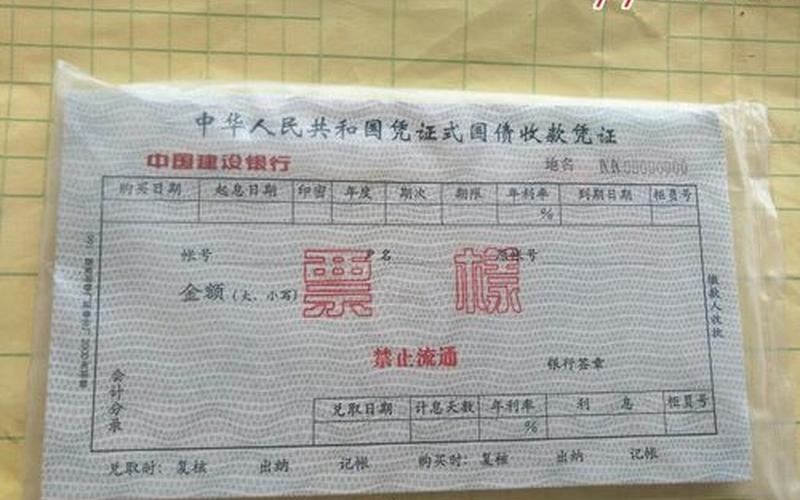 中华人民共和国凭证式国债收款凭证
中国建设银行 地名 AA00000000
购买日期 起息日期 印密 年度 期次 期限 年利率 到期日期 柜员号
%
帐号 户名 原帐号
票样
金额(大、小写)
缴款人收执
禁止流通
银行签章
会计分录
兑取日期 计息天数 年利率 利息 柜员号
%
兑取时: 复核 出纳 记帐 购买时: 复核 出纳 记帐